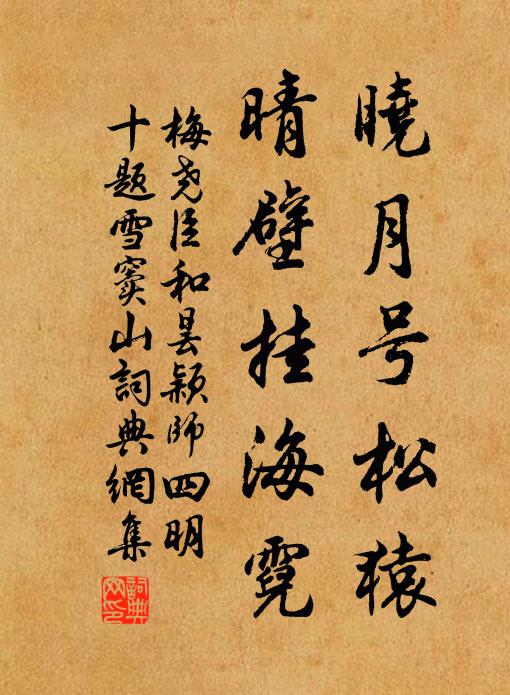 曉月号松猿
晴壁挂海霓
梅尧臣和昙颖师四明
十题雪窦山詞典網集
詞典网印